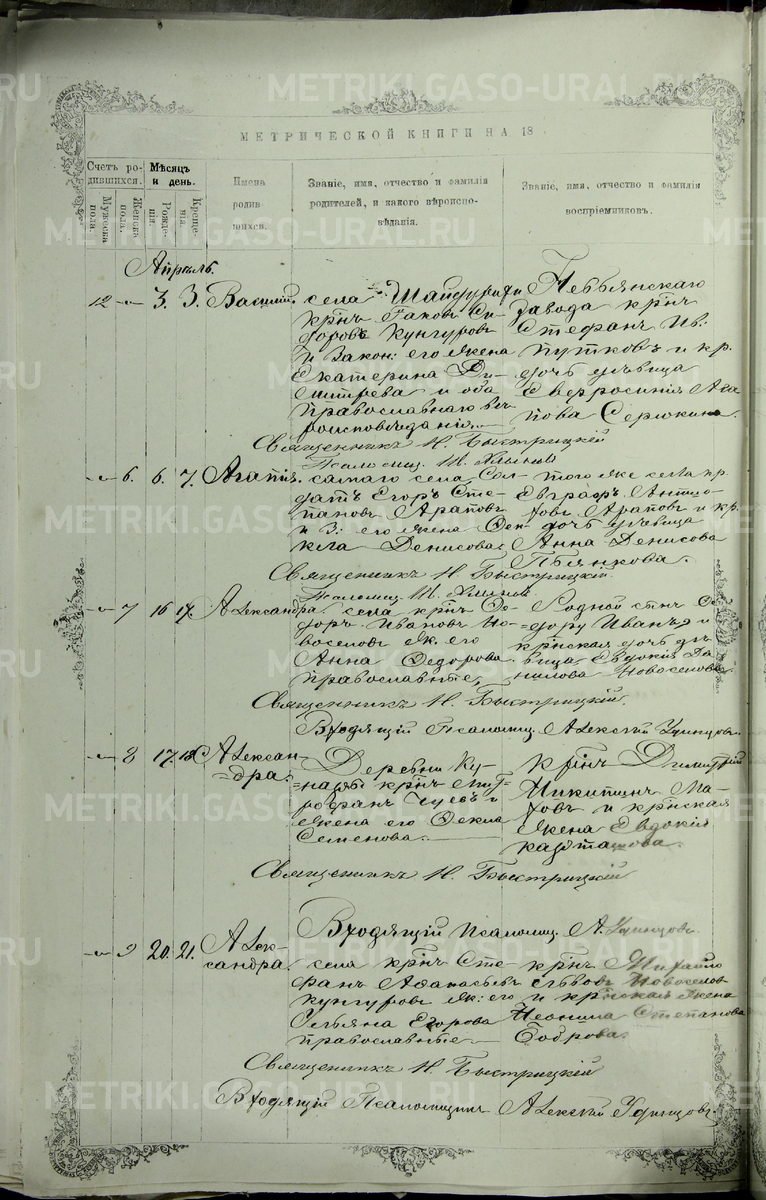 МЕТРИЧЕСКОЙ КНИГИ НА 18
Счетъ родившихся.
Мужеска пола.
Женска пола.
Мѣсяцъ и день.
Рожденія.
Крещенія.
Имена родившихся.
Званіе, имя, отчество и фамилія родителей, и какого вѣроисповѣданія.
Званіе, имя, отчество и фамилія воспріемниковъ.
Апрѣль.
12 3. 3. Василій.
села Шайдурихи
крн̃ъ Іаковъ Си-
доровъ Кунгуровъ
и закон: его жена
Екатерина Ди-
митріева и оба
православнаго вѣ-
роисповѣданія.
Невьянскаго
завода крн̃ъ
Стефанъ Ив:
Путковъ и кр.
дочь дѣвица
Евфросинія Ага
пова Серюкина.
Священникъ Н. Быстрицкій
Псаломщ.
6. 6. 7. Агапія.
самаго села
датъ Егоръ Сте-
пановъ Араповъ
и З: его жена Ѳек-
кла Денисова
того же села кр.
Евграфъ
Араповъ и кр.
дочь дѣвица
Анна Денисова
Пьянкова.
Священникъ Н. Быстрицкій.
Псаломщ.
7 16 17. Александра.
села крн̃ъ Ѳе-
доръ Ивановъ Но-
воселовъ ж. его
Анна Ѳедорова
православные,
Родной сынъ Ѳе-
дору Иванъ и
крн̃ская дочь дѣ-
вица Евдокія Да-
нилова Новоселова
Священникъ Н. Быстрицкій.
Входящій Псаломщ. Алексѣй Удинцовъ.
8 17. 18 Алексан-
дра.
Деревни Ку-
крн̃ъ Мит-
рофанъ
жена его Ѳекла
Семенова.
крн̃ъ Димитрій
Никитинъ Ма-
ховъ и крн̃ская
жена Евдокія
Карташова.
Священникъ Н. Быстрицкій
Входящій Псаломщ. А. Удинцовъ.
9 20. 21. Алек-
сандра.
села крн̃ъ Сте-
фанъ Аѳанасьевъ
Кунгуровъ ж: его
Ульяна Егорова
православные
крн̃ъ Михайло
Львовъ Новоселов
и крн̃ская жена
Неонила Степанова
Боброва.
Священникъ Н. Быстрицкій
Входящій Псаломщикъ Алексѣй Удинцовъ.
METRIKI.GASO-URAL.RU